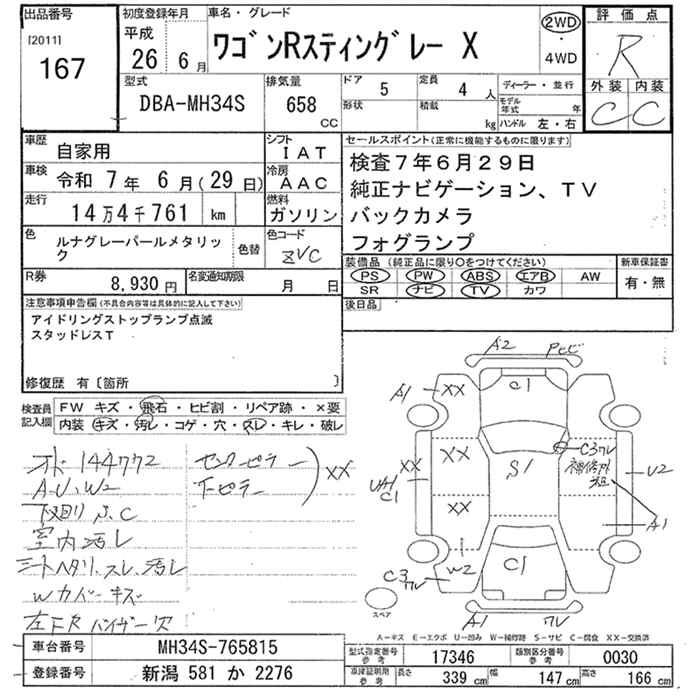 出品番号
[2011]
167
初度登録年月
平成
26 6月
車名・グレード
ワゴンRスティングレー X
2WD
・
4WD
評価点
R
外装 内装
C C
型式
DBA-MH34S
排気量
658
CC
ドア 5
形状
定員 4 人
積載 kg
ディーラー・並行
モデル年式 年
ハンドル 左・右
車歴
自家用
シフト
IAT
車検
令和 7年 6月(29日)
冷房
AAC
走行
14万4千761 km
燃料
ガソリン
色
ルナグレーパールメタリック
色替
色コード
ZVC
R券
8,930円
名変通知期限
月 日
セールスポイント(正常に機能するものに限ります)
検査7年6月29日
純正ナビゲーション、TV
バックカメラ
フォグランプ
装備品(純正品に限り○をつけてください)
PS PW ABS エアB AW
SR ナビ TV カワ
新車保証書
有・無
後日品
注意事項申告欄(不具合内容等は具体的に記入して下さい)
アイドリングストップランプ点滅
スタッドレスT
修復歴 有〔箇所 〕
検査員
記入欄
FW キズ・飛石・ヒビ割・リペア跡・×要
内装 キズ・汚レ・コゲ・穴・スレ・キレ・破レ
オド 144772
A・U、W2
下回り S、C
室内汚レ
シートヘタリ、スレ、汚レ
Wカバーキズ
左FR バイザー欠
センターピラー
Fピラー
XX
A2
A1
XX
C1
XX
XX
XX
S1
C3ワレ
補修跡
U2
A1
C1
W2
C3ワレ
C1
A1
ワレ
スペア
A-キズ E-エクボ U-凹み W-補修跡 S-サビ C-腐食 XX-交換済
車台番号
MH34S-765815
登録番号
新潟 581 か 2276
型式指定番号
参考
17346
類別区分番号
参考
0030
車検証明用
参考
長さ 339 cm
幅 147 cm
高さ 166 cm